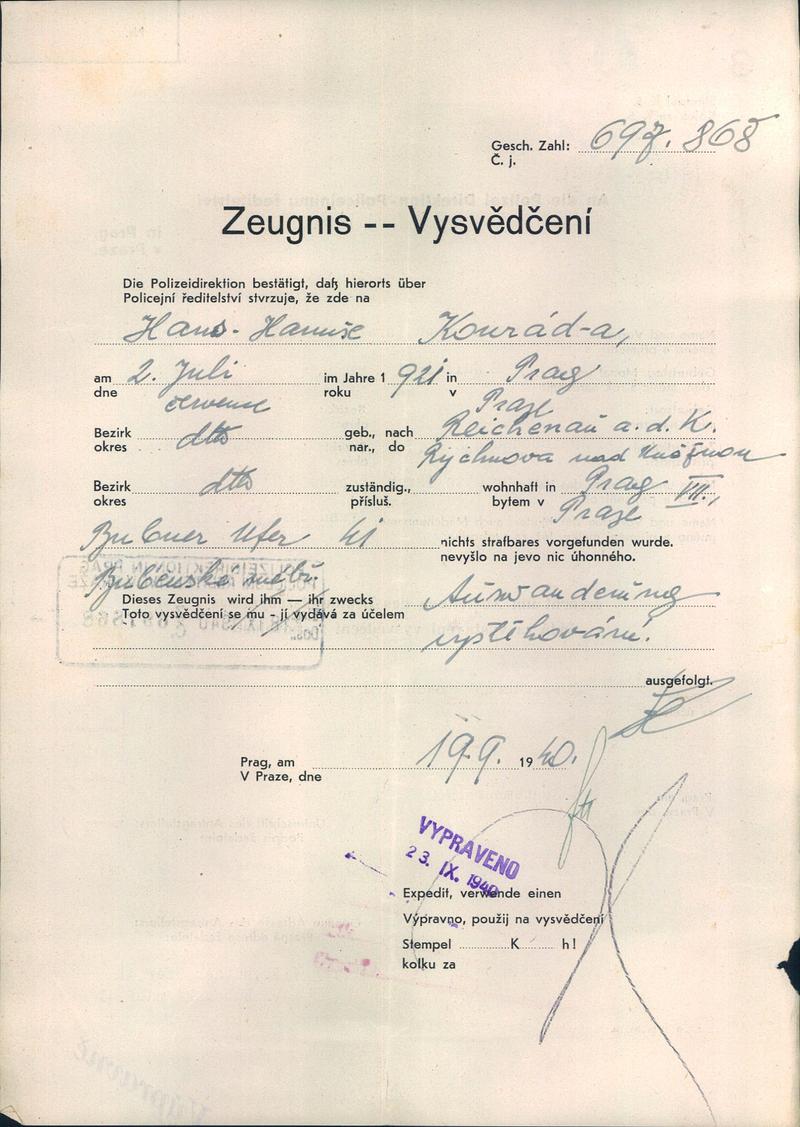 Gesch. Zahl: 697.868
Č. j.
Zeugnis -- Vysvědčení
Die Polizeidirektion bestätigt, daß hierorts über
Policejní ředitelství stvrzuje, že zde na
Hans - Hanuše Konrád-a,
am 2. Juli im Jahre 1 921 in Prag
dne července roku v Praze
Bezirk dtto geb., nach Reichenau a. d. K.
okres nar., do Rychnova nad Kněžnou
Bezirk dtto zuständig., wohnhaft in Prag VII.,
okres přísluš. bytem v Praze
Bubner Ufer 41 nichts strafbares vorgefunden wurde.
nevyšlo na jevo nic úhonného.
Bubenské nábř.
Dieses Zeugnis wird ihm — ihr zwecks Auswanderung
Toto vysvědčení se mu - jí vydává za účelem vystěhování.
ausgefolgt.
Prag, am 19.9. 19 40.
V Praze, dne
VYPRAVENO
23. IX. 1940
Expedit, verwende einen
Výpravno, použij na vysvědčení
Stempel K h!
kolku za